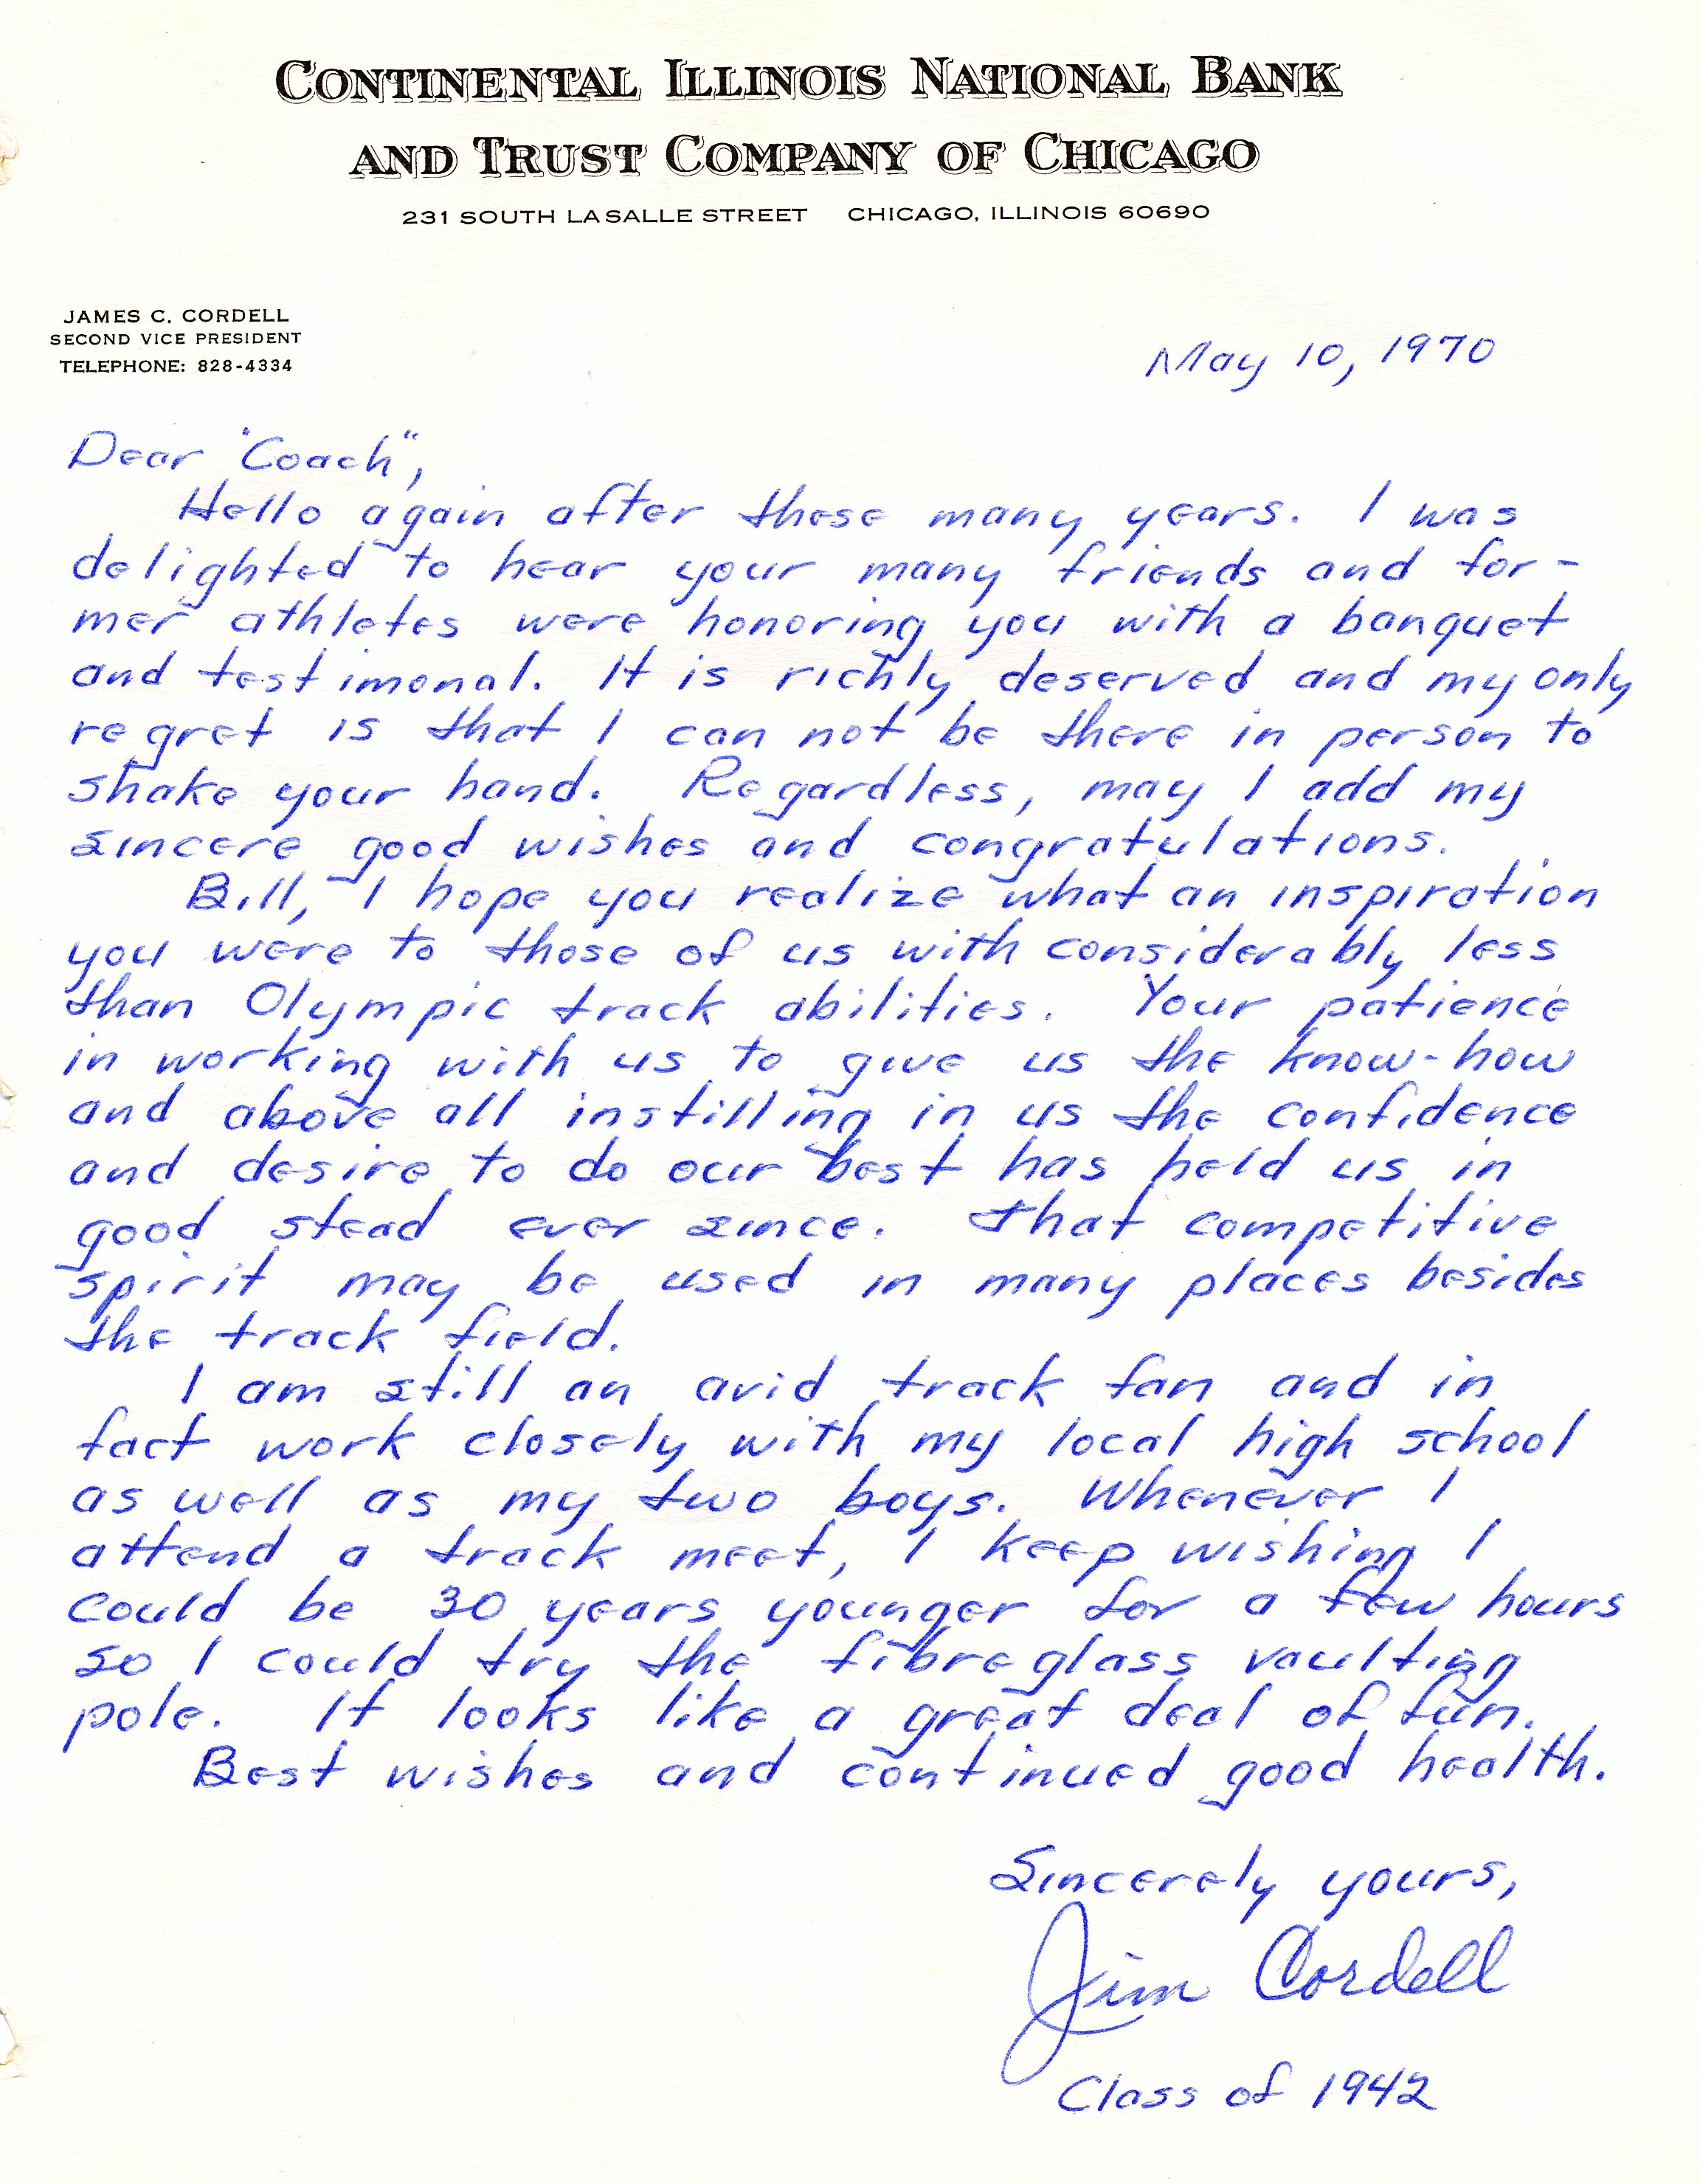 CONTINENTAL ILLINOIS NATIONAL BANK
AND TRUST COMPANY OF CHICAGO
231 SOUTH LA SALLE STREET CHICAGO, ILLINOIS 60690
JAMES C. CORDELL
SECOND VICE PRESIDENT
TELEPHONE: 828-4334
May 10, 1970
Dear "Coach",
Hello again after these many years. I was
delighted to hear your many friends and for-
mer athletes were honoring you with a banquet
and testimonal. It is richly deserved and my only
regret is that I can not be there in person to
shake your hand. Regardless, may I add my
sincere good wishes and congratulations.
Bill, I hope you realize what an inspiration
you were to those of us with considerably less
than Olympic track abilities. Your patience
in working with us to give us the know-how
and above all instilling in us the confidence
and desire to do our best has held us in
good stead ever since. That competitive
spirit may be used in many places besides
the track field.
I am still an avid track fan and in
fact work closely with my local high school
as well as my two boys. Whenever I
attend a track meet, I keep wishing I
could be 30 years younger for a few hours
so I could try the fibreglass vaulting
pole. It looks like a great deal of fun.
Best wishes and continued good health.
Sincerely yours,
Jim Cordell
Class of 1942